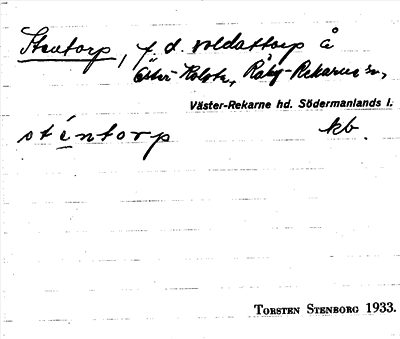 Stentorp, f. d. soldattorp å
Öster-Kolsta, Råby-Rekarne sn,
Väster-Rekarne hd. Södermanlands l.
sténtorp kb.
TORSTEN STENBORG 1933.